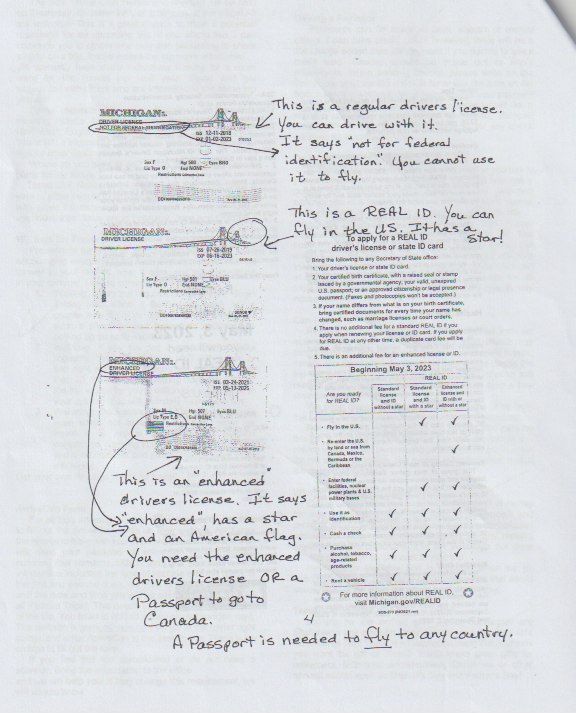 MICHIGAN
DRIVER LICENSE
NOT FOR FEDERAL IDENTIFICATION
ISS 12-11-2018
EXP 01-02-2023
Sex F Hgt 500 Eyes BRO
Lic Type O End NONE
Restrictions
This is a regular drivers license.
You can drive with it.
It says "not for federal
identification." You cannot use
it to fly.
MICHIGAN
DRIVER LICENSE
ISS
EXP
Hgt 501 Eyes BLU
End NONE
Restrictions
This is a REAL ID. You can
fly in the US. It has a
star!
To apply for a REAL ID
driver's license or state ID card
Bring the following to any Secretary of State office:
1. Your driver's license or state ID card.
2. Your certified birth certificate, with a raised seal or stamp
issued by a governmental agency, your valid, unexpired
U.S. passport; or an approved citizenship or legal presence
document. (Faxes and photocopies won't be accepted.)
3. If your name differs from what is on your birth certificate,
bring certified documents for every time your name has
changed, such as marriage licenses or court orders.
4. There is no additional fee for a standard REAL ID if you
apply when renewing your license or ID card. If you apply
for REAL ID at any other time, a duplicate card fee will be
due.
5. There is an additional fee for an enhanced license or ID.
MICHIGAN
ENHANCED
DRIVER LICENSE
ISS 03-24-2021
EXP 05-13-2025
Hgt 507 Eyes BLU
Lic Type E,O End NONE
Restrictions
This is an "enhanced"
drivers license. It says
"enhanced", has a star
and an American flag.
You need the enhanced
drivers license OR a
Passport to go to
Canada.
Beginning May 3, 2023
REAL ID
Are you ready
for REAL ID?
Standard
license
and ID
without a star
Standard
license
and ID
with a star
Enhanced
license and
ID with or
without a star
• Fly in the U.S. ✓ ✓
• Re-enter the U.S.
by land or sea from
Canada, Mexico,
Bermuda or the
Caribbean ✓
• Enter federal
facilities, nuclear
power plants & U.S.
military bases ✓ ✓
• Use it as
identification ✓ ✓ ✓
• Cash a check ✓ ✓ ✓
• Purchase
alcohol, tobacco,
age-related
products ✓ ✓ ✓
• Rent a vehicle ✓ ✓ ✓
For more information about REAL ID,
visit Michigan.gov/REALID
4
A Passport is needed to fly to any country.